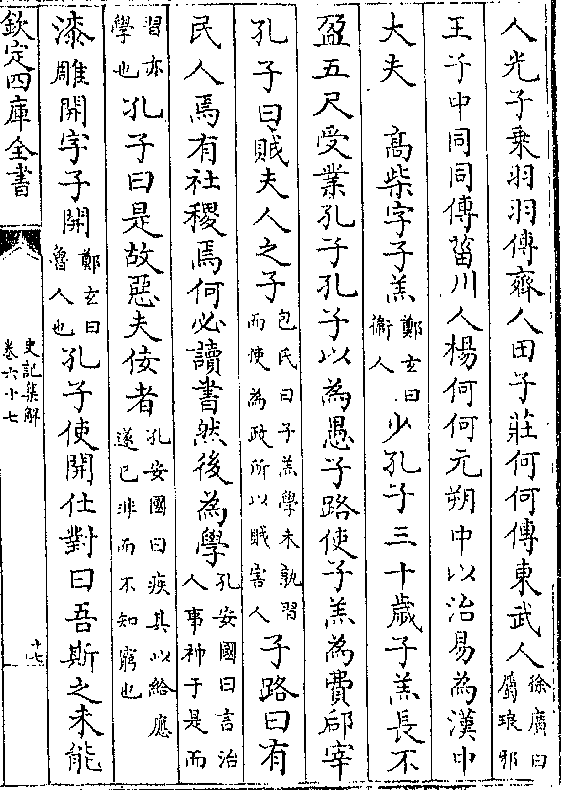 人光子乗羽羽傳齊人田子莊何何傳東武人徐廣曰屬琅邪
王子中同同傳菑川人楊何何元朔中以治易為漢中
大夫　高柴字子羔鄭玄曰衞人少孔子三十歳子羔長不
盈五尺受業孔子孔子以為愚子路使子羔為費郈宰
孔子曰賊夫人之子包氏曰子羔學未孰習而使為政所以賊害人子路曰有
民人焉有社稷焉何必讀書然後為學孔安國曰言治人事神于是而
習亦學也孔子曰是故惡夫佞者孔安國曰疾其以給應遂已非而不知窮也
漆雕開字子開鄭玄曰魯人也孔子使開仕對曰吾斯之未能
欽定四庫全書
史記集解
卷六十七
十七